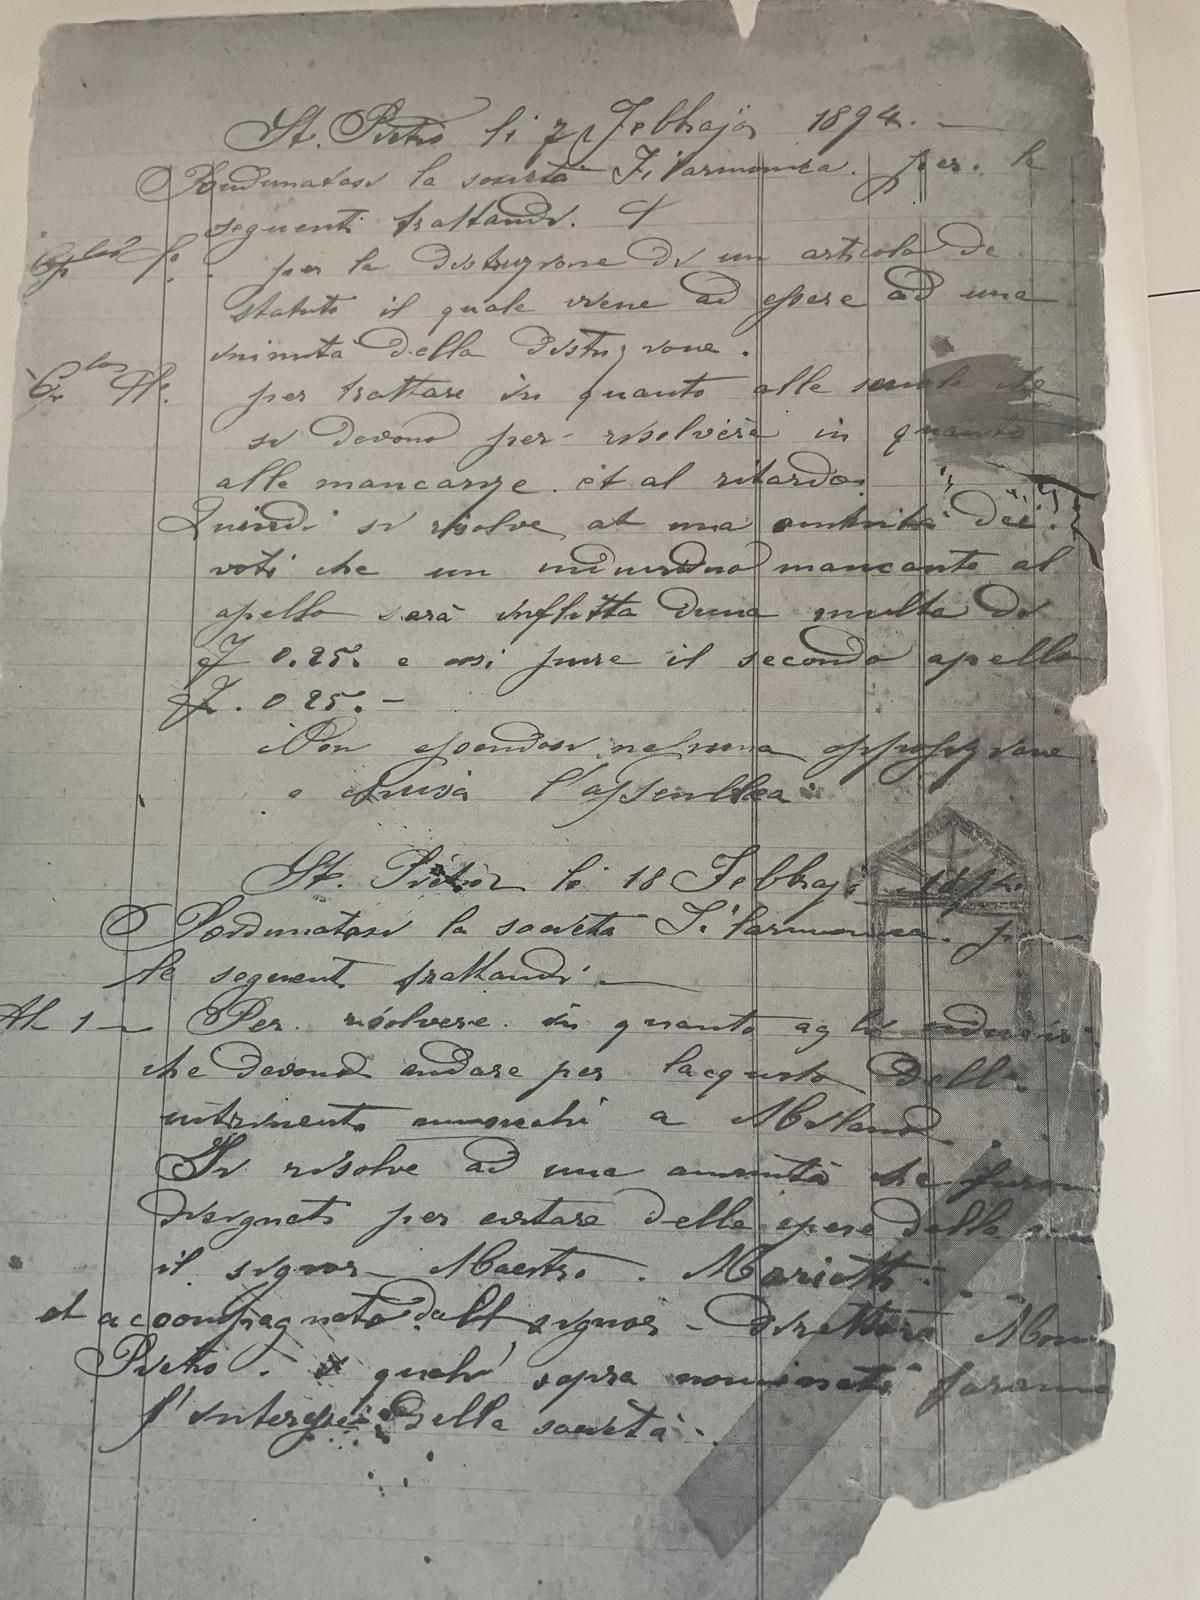 St. Pietro li 7 Febbrajo 1894. —
Radunatasi la società Filarmonica. per. le
seguenti trattandi.
per la distruzione di un articolo de
statuto il quale viene ad essere ad una
nimità della distruzione.
per trattare in quanto alle che
si devono per risolvere in quanto
alle mancanze. et al ritardo.
Quindi si risolve at una dei
voti che un individuo mancante al
apello sarà inflitta duna multa di
f 0.25. e cosi pure il secondo apello
f. 0 25. —
Non essendosi nessuna opposizione
e l'assemblea
St. Pietro li 18 Febbrajo 1894.
Radunatasi la società Filarmonica.
le seguent trattandi —
Al 1 — Per. risolvere. in quanto agli
che devono andare per lacquisto dell
a Milano
Si risolve ad una che furon
disignati per evitare delle spese della
il signor Maestro. Marietti.
et accompagnato dall signor Direttore
Pietro. i quali sopra nominati faranno
l'interessi della società.